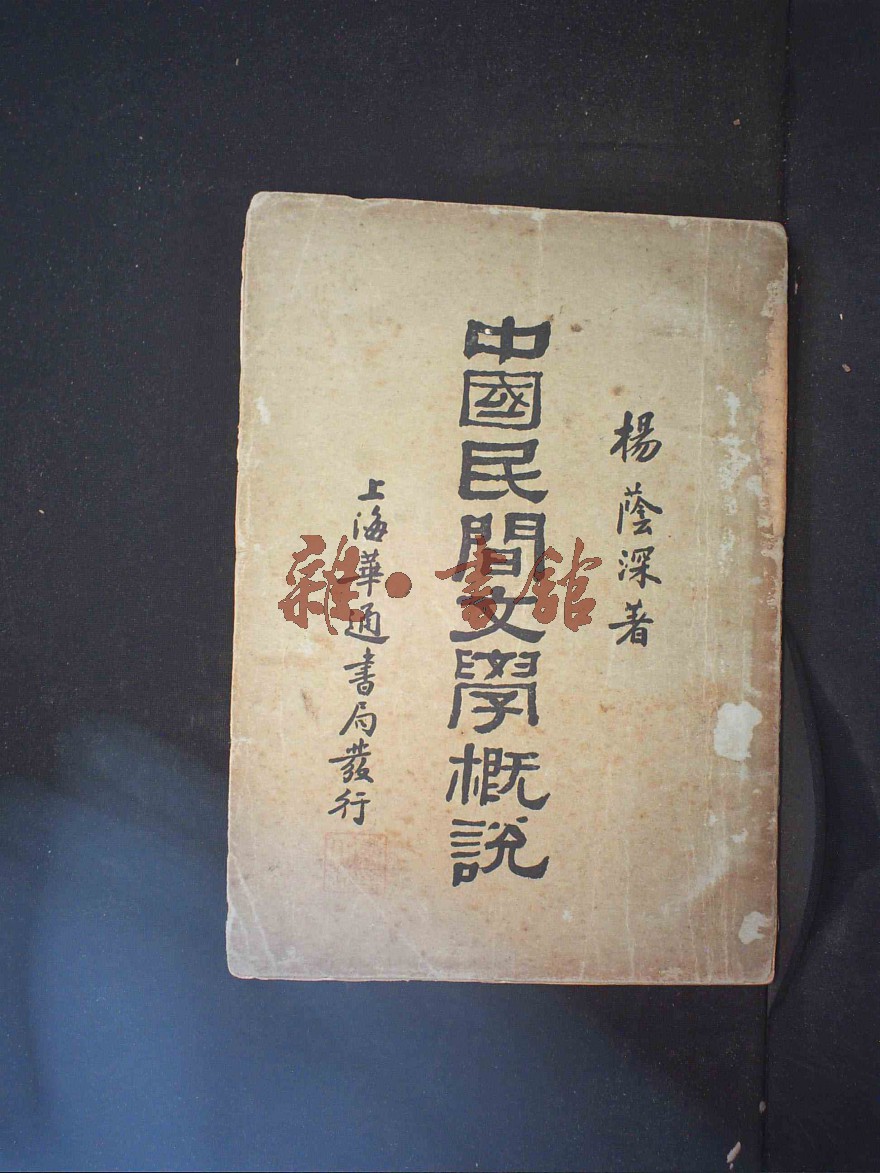 楊蔭深著
中國民間文學概說
上海華通書局發行
雜·書館